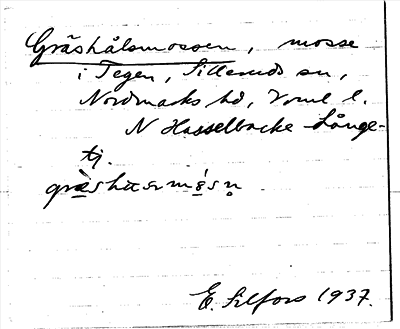 Gräshålsmossen, mosse
i Tegen, Silleruds sn,
Nordmarks hd, Vrml l.
N Hasselbacke Långe-
tj.
E. Silfors 1937.